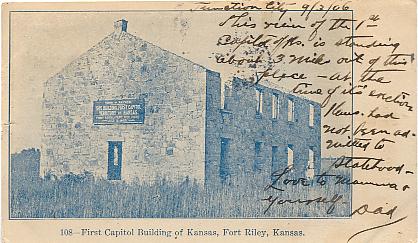 Junction City 9/2/06
This view of the 1st
Capitol of Ks. is standing
about 3 mile out of this
place - at the
time of its erection
Kans. had
not been ad-
mitted to
statehood -
Love to Mamma &
yourself Dad
THIS BUILDING, FIRST CAPITOL
TERRITORY OF KANSAS.
108—First Capitol Building of Kansas, Fort Riley, Kansas.